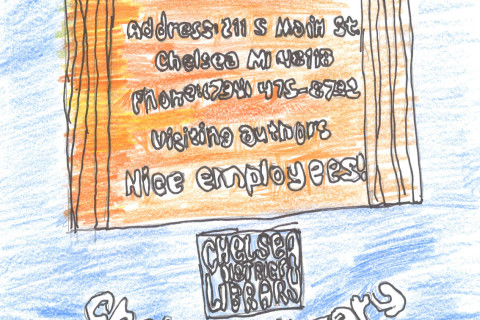 Address: 211 S Main St.
Chelsea MI 48118
Phone (734) 475-8732
Visiting authors
Nice employees!
CHELSEA
DISTRICT
LIBRARY